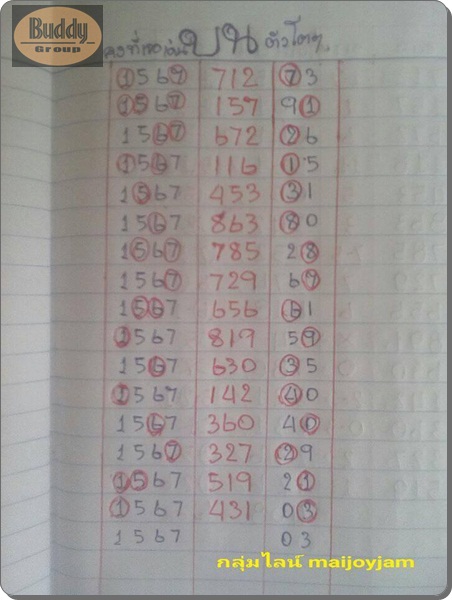 Buddy
Group
บน ตัวโดดๆ
1567 712 73
1567 157 91
1567 672 26
1567 116 15
1567 453 31
1567 863 80
1567 785 28
1567 729 67
1567 656 61
1567 819 59
1567 630 35
1567 142 40
1567 360 40
1567 327 29
1567 519 21
1567 431 03
1567 03
กลุ่มไลน์ maijoyjam